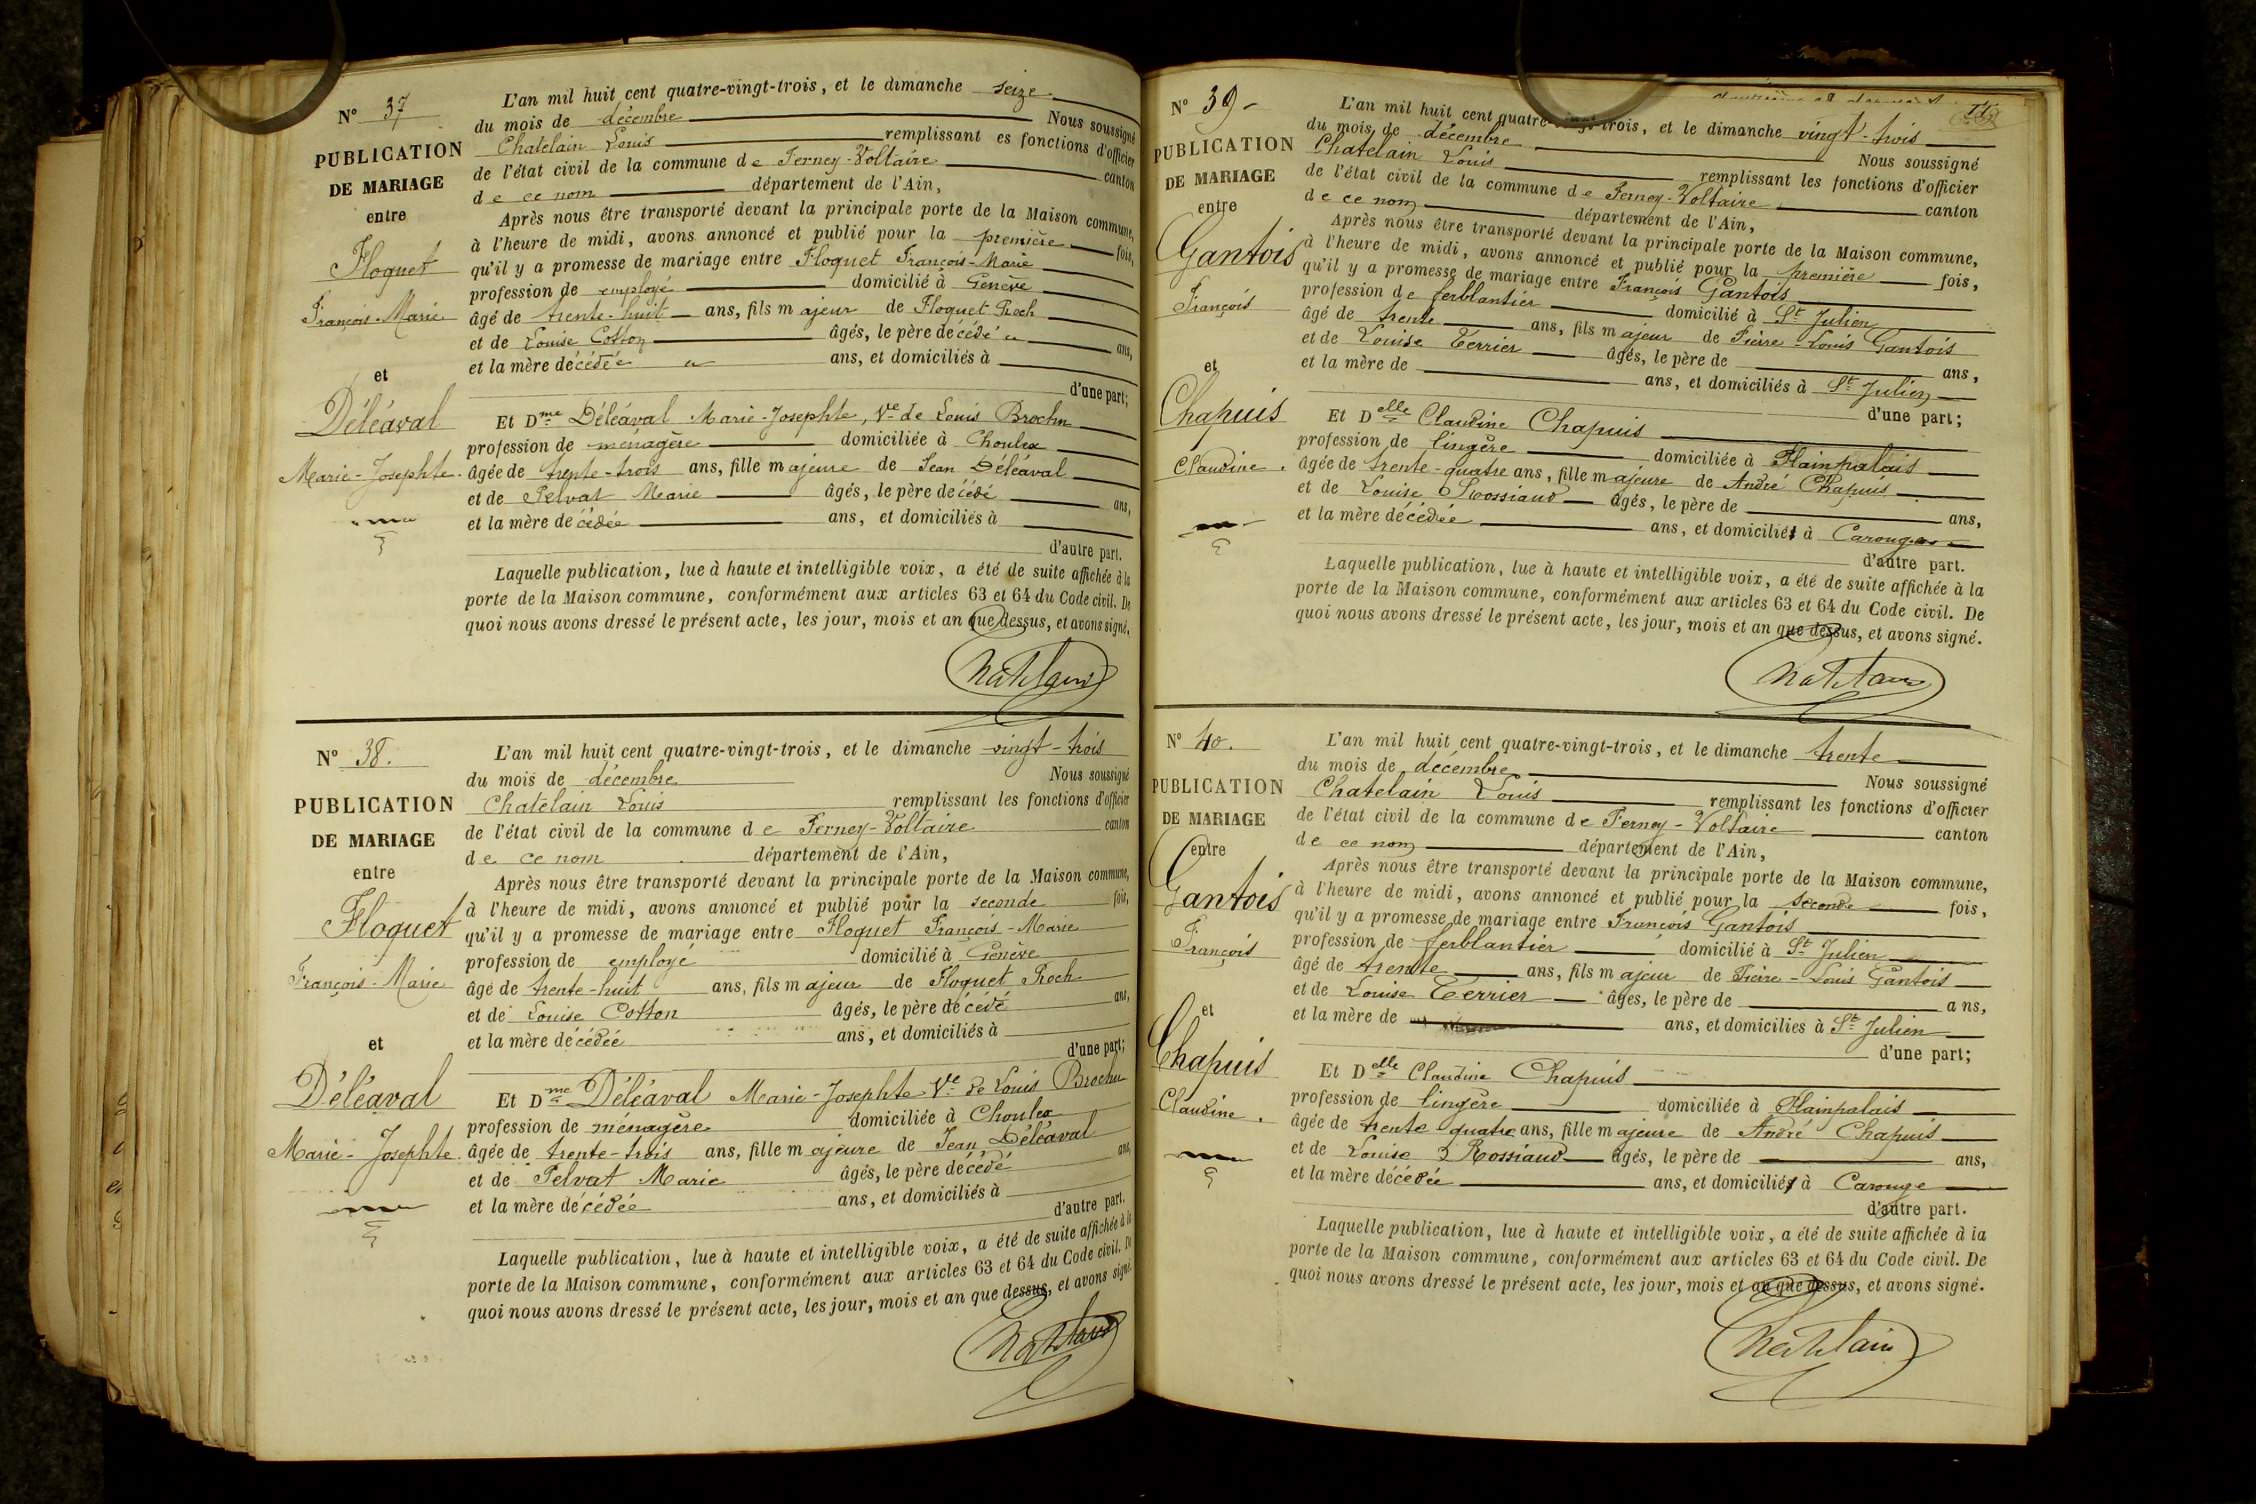 N° 37
PUBLICATION
DE MARIAGE
entre
Floquet
François-Marie
et
Déléaval
Marie-Josephte.
L'an mil huit cent quatre-vingt-trois, et le dimanche seize
du mois de décembre Nous soussigné
Chatelain Louis remplissant es fonctions d'officier
de l'état civil de la commune de Ferney-Voltaire canton
de ce nom département de l'Ain,
Après nous être transporté devant la principale porte de la Maison commune,
à l'heure de midi, avons annoncé et publié pour la première fois,
qu'il y a promesse de mariage entre Floquet François-Marie
profession de employé domicilié à Genève
âgé de trente-huit ans, fils majeur de Floquet Roch
et de Louise Cotton âgés, le père décédé ans,
et la mère décédée ans, et domiciliés à
d'une part;
Et Dme Déléaval Marie-Josephte, Ve de Louis Brochu
profession de ménagère domiciliée à Choulex
âgée de trente-trois ans, fille majeure de Jean Déléaval
et de Pelvat Marie âgés, le père décédé ans,
et la mère décédée ans, et domiciliés à
d'autre part.
Laquelle publication, lue à haute et intelligible voix, a été de suite affichée à la
porte de la Maison commune, conformément aux articles 63 et 64 du Code civil. De
quoi nous avons dressé le présent acte, les jour, mois et an que dessus, et avons signé.
Chatelain
N° 38.
PUBLICATION
DE MARIAGE
entre
Floquet
François-Marie
et
Déléaval
Marie-Josephte.
L'an mil huit cent quatre-vingt-trois, et le dimanche vingt-trois
du mois de décembre Nous soussigné
Chatelain Louis remplissant les fonctions d'officier
de l'état civil de la commune de Ferney-Voltaire canton
de ce nom département de l'Ain,
Après nous être transporté devant la principale porte de la Maison commune,
à l'heure de midi, avons annoncé et publié pour la seconde fois,
qu'il y a promesse de mariage entre Floquet François-Marie
profession de employé domicilié à Genève
âgé de trente-huit ans, fils majeur de Floquet Roch
et de Louise Cotton âgés, le père décédé ans,
et la mère décédée ans, et domiciliés à
d'une part;
Et Dme Déléaval Marie-Josephte Ve de Louis Brochu
profession de ménagère domiciliée à Choulex
âgée de trente-trois ans, fille majeure de Jean Déléaval
et de Pelvat Marie âgés, le père décédé ans,
et la mère décédée ans, et domiciliés à
d'autre part.
Laquelle publication, lue à haute et intelligible voix, a été de suite affichée à la
porte de la Maison commune, conformément aux articles 63 et 64 du Code civil. De
quoi nous avons dressé le présent acte, les jour, mois et an que dessus, et avons signé.
Chatelain
N° 39-
PUBLICATION
DE MARIAGE
entre
Gantois
François
et
Chapuis
Claudine.
L'an mil huit cent quatre-vingt-trois, et le dimanche vingt-trois
du mois de décembre Nous soussigné
Chatelain Louis remplissant les fonctions d'officier
de l'état civil de la commune de Ferney-Voltaire canton
de ce nom département de l'Ain,
Après nous être transporté devant la principale porte de la Maison commune,
à l'heure de midi, avons annoncé et publié pour la première fois,
qu'il y a promesse de mariage entre François Gantois
profession de ferblantier domicilié à St Julien
âgé de trente ans, fils majeur de Pierre-Louis Gantois
et de Louise Terrier âgés, le père de ans,
et la mère de ans, et domiciliés à St Julien
d'une part;
Et Delle Claudine Chapuis
profession de lingère domiciliée à Plainpalais
âgée de trente-quatre ans, fille majeure de André Chapuis
et de Louise âgés, le père de ans,
et la mère décédée ans, et domicilié à Carouge
d'autre part.
Laquelle publication, lue à haute et intelligible voix, a été de suite affichée à la
porte de la Maison commune, conformément aux articles 63 et 64 du Code civil. De
quoi nous avons dressé le présent acte, les jour, mois et an que dessus, et avons signé.
Chatelain
N° 40.
PUBLICATION
DE MARIAGE
entre
Gantois
François
et
Chapuis
Claudine.
L'an mil huit cent quatre-vingt-trois, et le dimanche trente
du mois de décembre Nous soussigné
Chatelain Louis remplissant les fonctions d'officier
de l'état civil de la commune de Ferney-Voltaire canton
de ce nom département de l'Ain,
Après nous être transporté devant la principale porte de la Maison commune,
à l'heure de midi, avons annoncé et publié pour la seconde fois,
qu'il y a promesse de mariage entre François Gantois
profession de ferblantier domicilié à St Julien
âgé de trente ans, fils majeur de Pierre-Louis Gantois
et de Louise Terrier âgés, le père de ans,
et la mère de ans, et domiciliés à St Julien
d'une part;
Et Delle Claudine Chapuis
profession de lingère domiciliée à Plainpalais
âgée de trente quatre ans, fille majeure de André Chapuis
et de Louise Rossiaud âgés, le père de ans,
et la mère décédée ans, et domicilié à Carouge
d'autre part.
Laquelle publication, lue à haute et intelligible voix, a été de suite affichée à la
porte de la Maison commune, conformément aux articles 63 et 64 du Code civil. De
quoi nous avons dressé le présent acte, les jour, mois et an que dessus, et avons signé.
Chatelain